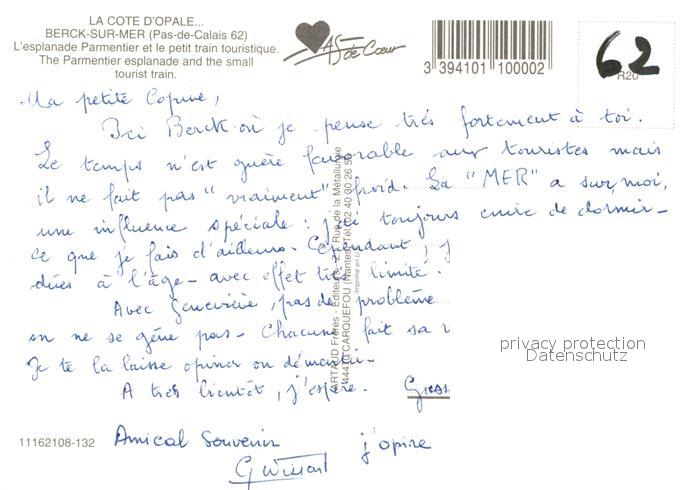 LA COTE D'OPALE...
BERCK-SUR-MER (Pas-de-Calais 62)
L'esplanade Parmentier et le petit train touristique.
The Parmentier esplanade and the small
tourist train.
AS de Cœur
3 394101 100002
62
R20
Ma petite Copine,
Ici Berck où je pense très fortement à toi.
Le temps n'est guère favorable aux touristes mais
il ne fait pas "vraiment" froid. La "MER" a sur moi,
une influence spéciale : j'ai toujours envie de dormir -
ce que je fais d'ailleurs. Cependant,
dûes à l'âge - avec effet très limité.
Avec Geneviève, pas de problème
on ne se gêne pas - Chacune fait sa
Je te la laisse opiner ou démentir -
A très bientôt, j'espère.
Amical Souvenir
j'opire
ARTAUD Frères - Editeurs - Rue de la Métallurgie
44470 CARQUEFOU (Nantes) Tél. 02 40
11162108-132
privacy protection
Datenschutz